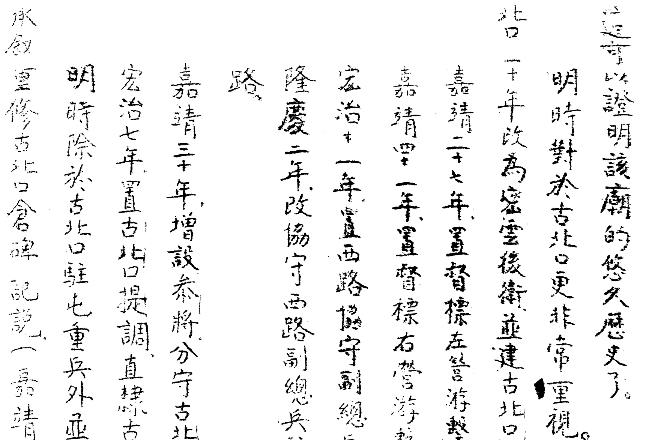 這可以證明該廟的悠久歷史了。
明時對於古北口更非常重視。
北口一十年改為密雲後衛，並建古北口
嘉靖二十七年置督標左營游擊
嘉靖四十一年置督標右營游擊
宏治十一年置西路協守副總兵
隆慶二年改協守西路副總兵
路、
嘉靖三十年增設參將分守古北
宏治七年置古北口提調直隸古
明時除於古北口駐屯重兵外並
重修古北口倉碑記說一嘉靖